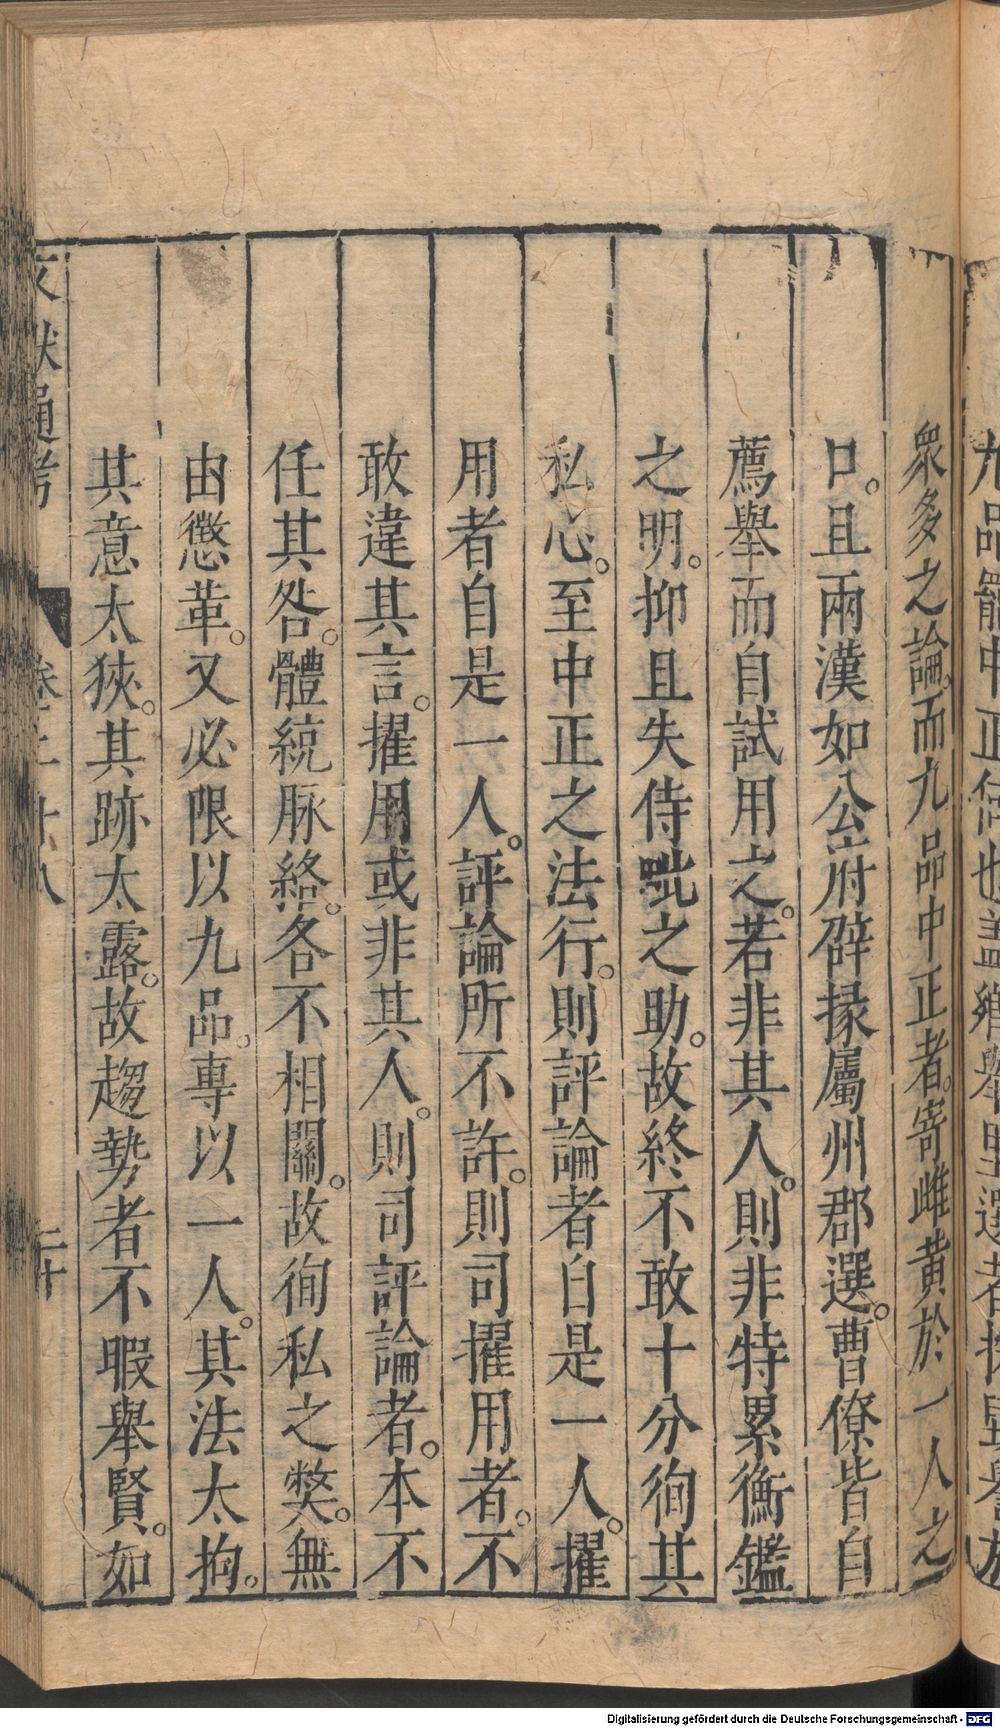 九品罷中正何也蓋鄉舉里選者採毀譽於
衆多之論。而九品中正者。寄雌黃於一人之
口。且兩漢如公府辟掾屬州郡選。曹僚皆自
薦舉而自試用之。若非其人。則非特累衡鑑
之明。抑且失侍毗之助。故終不敢十分徇其
私心。至中正之法行。則評論者自是一人。擢
用者自是一人。評論所不許。則司擢用者。不
敢違其言。擢用或非其人。則司評論者。本不
任其咎。體統脉絡。各不相關。故徇私之弊。無
由懲革。又必限以九品。專以一人。其法太拘。
其意太狹。其跡太露。故趨勢者不暇舉賢。如
文獻通考 卷二十八 二十
Digitalisierung gefördert durch die Deutsche Forschungsgemeinschaft - DFG